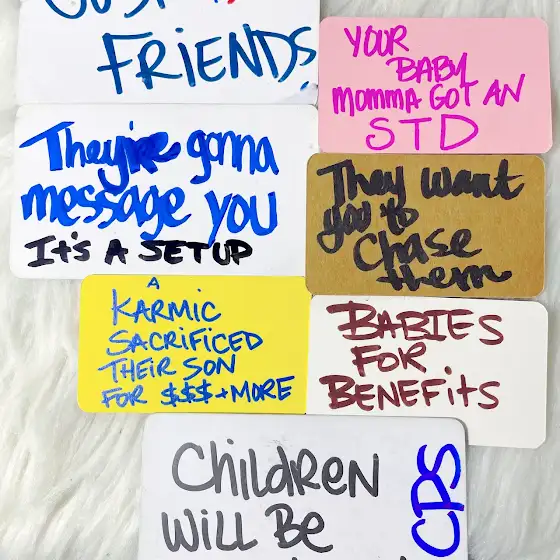 FRIENDS
YOUR
BABY
MOMMA GOT AN
STD
They're gonna
message you
It's A SETUP
They want
you to
Chase
them
A
KARMIC
SACRIFICED
THEIR SON
FOR $$$+MORE
BABIES
FOR
BENEFitS
ChildREN
WILL BE
CPS